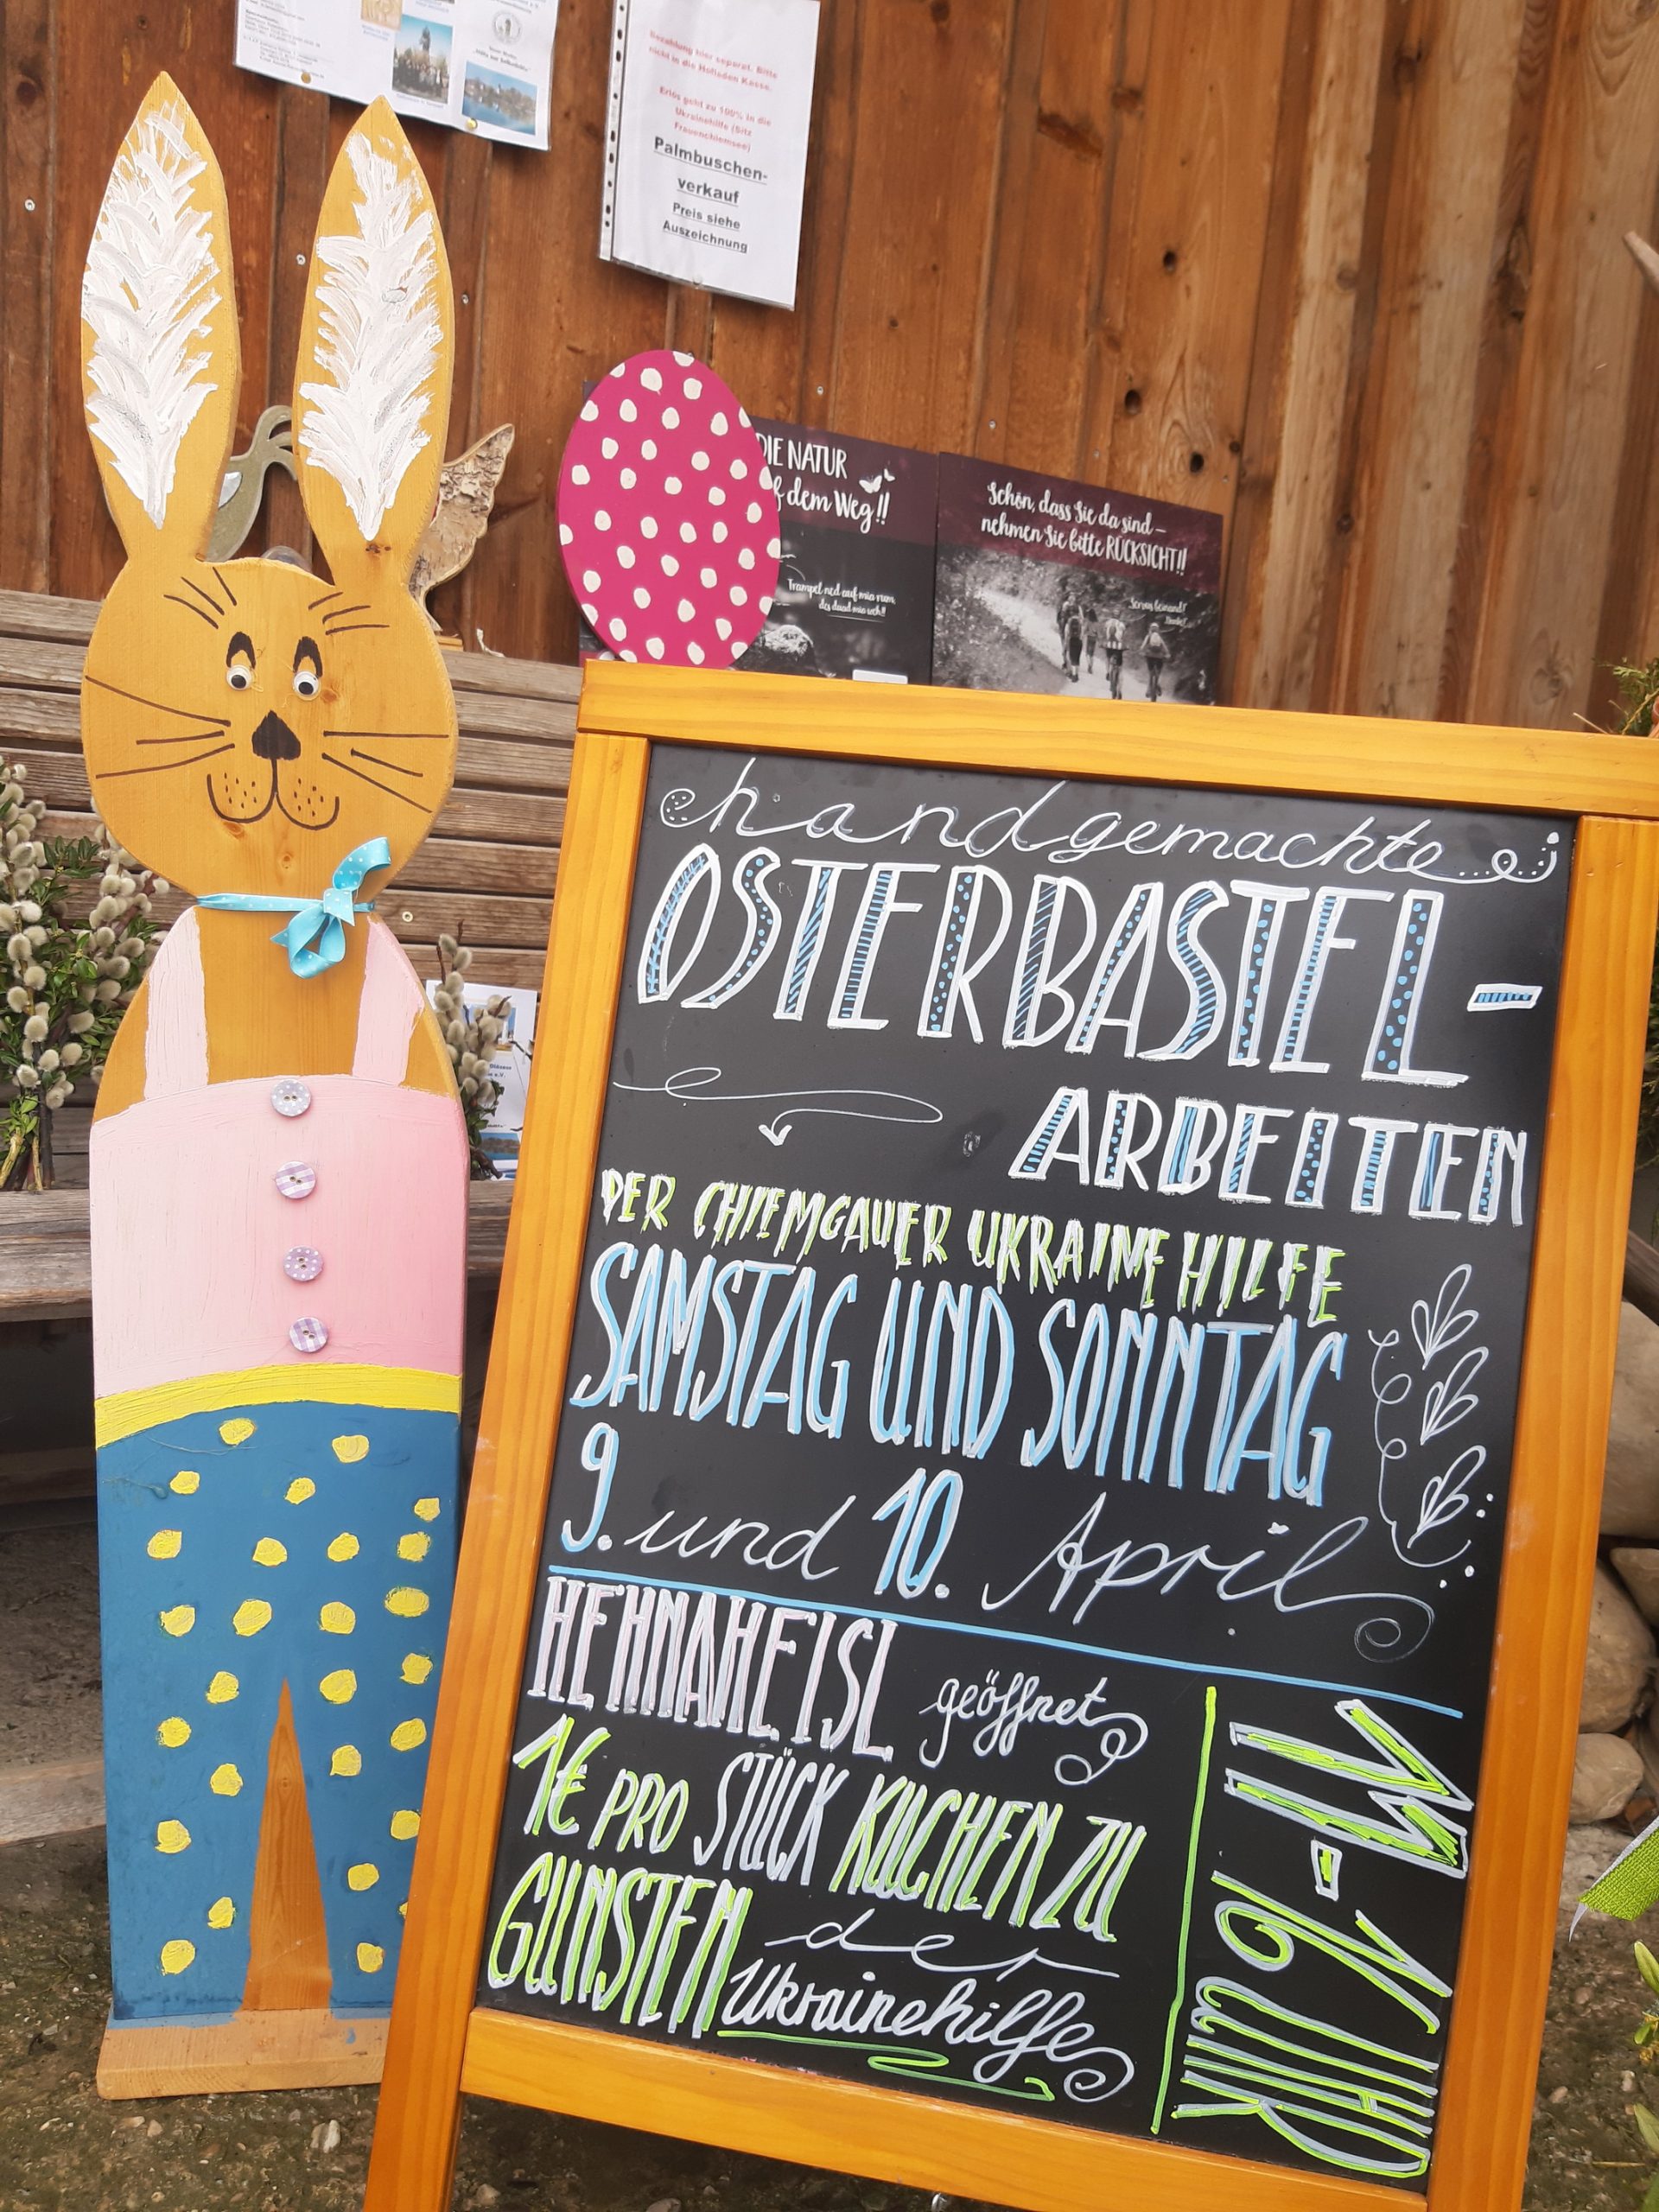 Bezahlung hier separat. Bitte
nicht in die Hofladen Kasse.
Erlös geht zu 100% in die
Ukrainehilfe (Sitz
Frauenchiemsee)
Palmbuschen-
verkauf
Preis siehe
Auszeichnung
DIE NATUR
f dem Weg!!
Trampel ned auf mia rum,
des duad mia weh!!
Schön, dass Sie da sind –
nehmen Sie bitte RÜCKSICHT!!
handgemachte
OSTERBASTEL-
ARBEITEN
DER CHIEMGAUER UKRAINE HILFE
SAMSTAG UND SONNTAG
9. und 10. April
HEHNAHEISL geöffnet
1€ PRO STÜCK KUCHEN ZU
GUNSTEN der
Ukrainehilfe
11-16 UHR